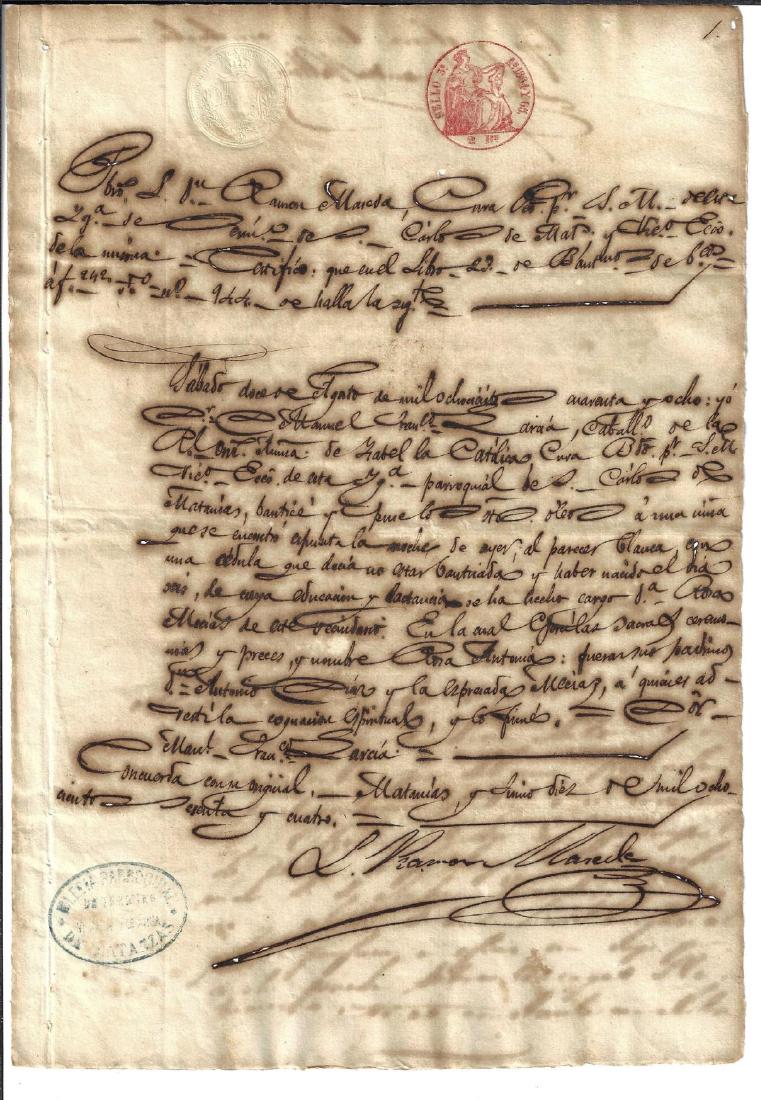 1.
SELLO 3º
2 Rs
Pbro. L. Dn. Ramon Mareda, Cura Bdo. pr. S. M. de la
Ygª. de de S. Cárlos de Matˢ. y Vicº. Ecco.
de la misma: Certifico: que en el Libro 23 de Bautmos. de
á f. 242 vto. nº. 944 se halla la sigte.
Sábado doce de Agosto de mil ochocientos cuarenta y ocho: yó
Dr. D. Manuel Franco. García, Caballo. de la
Rl. orn. Amna. de Isabel la Católica, Cura Bdo. pr. S. M.
Vicº. Ecco. de esta Ygª. parroquial de S. Cárlos de
Matanzas, bauticé y puse los stos. óleos á una niña
que se encontró espuesta la noche de ayer, al parecer blanca, con
una cédula que decia no estar bautizada y haber nacido el dia
seis, de cuya educacion y lactancia se ha hecho cargo Dª. Rosa
Mecias de este vecindario. En la cual egercí las sacras ceremo-
nias y preces, y nombré Rosa Antonia: fueron sus padrinos
Dn. Antonio Diaz y la espresada Mecias, á quienes ad-
vertí la cognacion espiritual, y lo firmé. = Dor.
Manl. Franco. García =
Concuerda con su original. Matanzas, y Junio diez de mil ocho-
cientos sesenta y cuatro.
L. Ramon Mareda
IGLESIA PARROQUIAL
DE TERMINO
DE MATANZAS